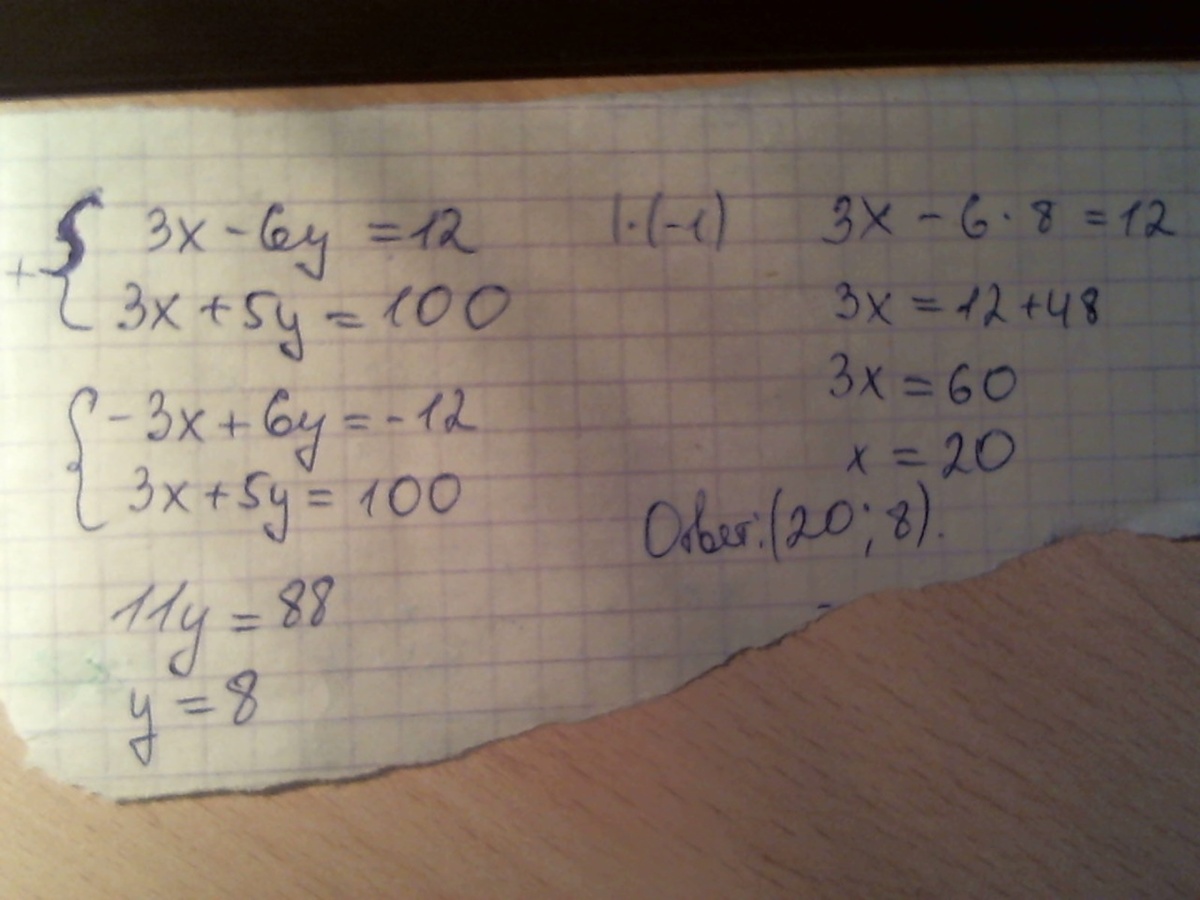 3x - 6y = 12 | · (-1)
3x + 5y = 100
- 3x + 6y = - 12
3x + 5y = 100
11y = 88
y = 8
3x - 6 · 8 = 12
3x = 12 + 48
3x = 60
x = 20
Ответ: (20; 8).